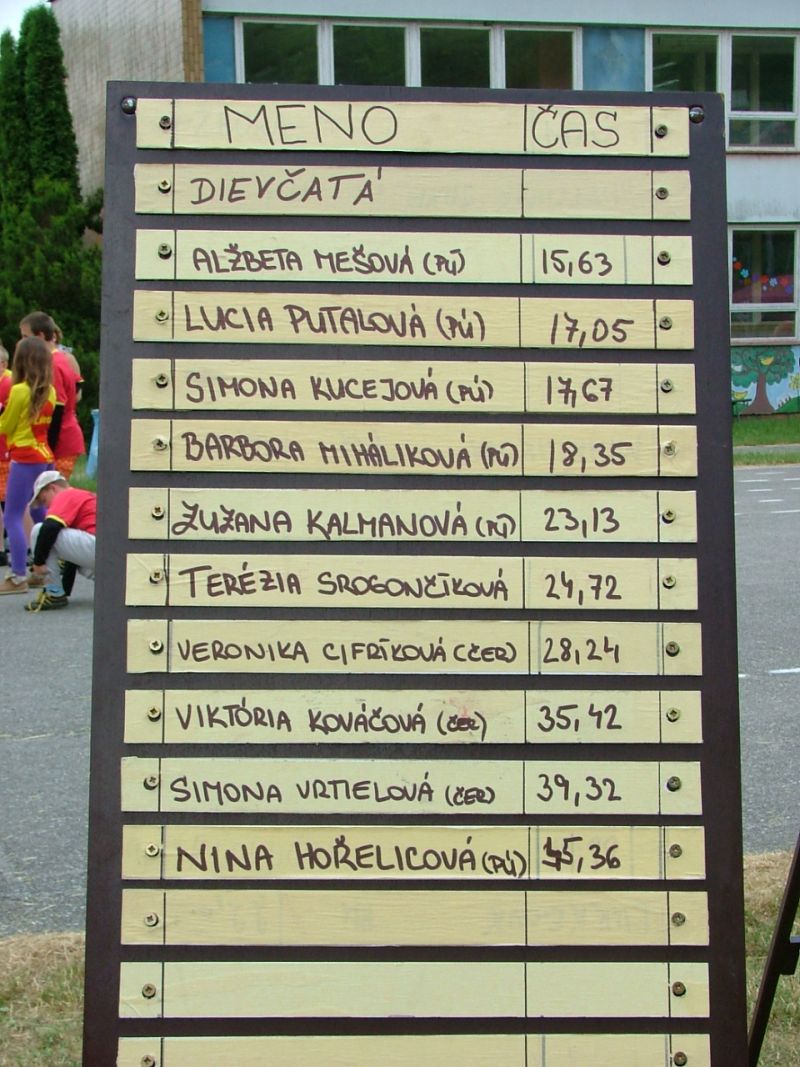 MENO ČAS
DIEVČATÁ
ALŽBETA MEŠOVÁ (PÚ) 15,63
LUCIA PUTALOVÁ (PÚ) 17,05
SIMONA KUCEJOVÁ (PÚ) 17,67
BARBORA MIHÁLIKOVÁ (PÚ) 18,35
ZUZANA KALMANOVÁ (PÚ) 23,13
TERÉZIA SROGONČÍKOVÁ 24,72
VERONIKA CIFRÍKOVÁ (ČER) 28,24
VIKTÓRIA KOVÁČOVÁ (ČER) 35,42
SIMONA VRTIELOVÁ (ČER) 39,32
NINA HOŘELICOVÁ (PÚ) 45,36